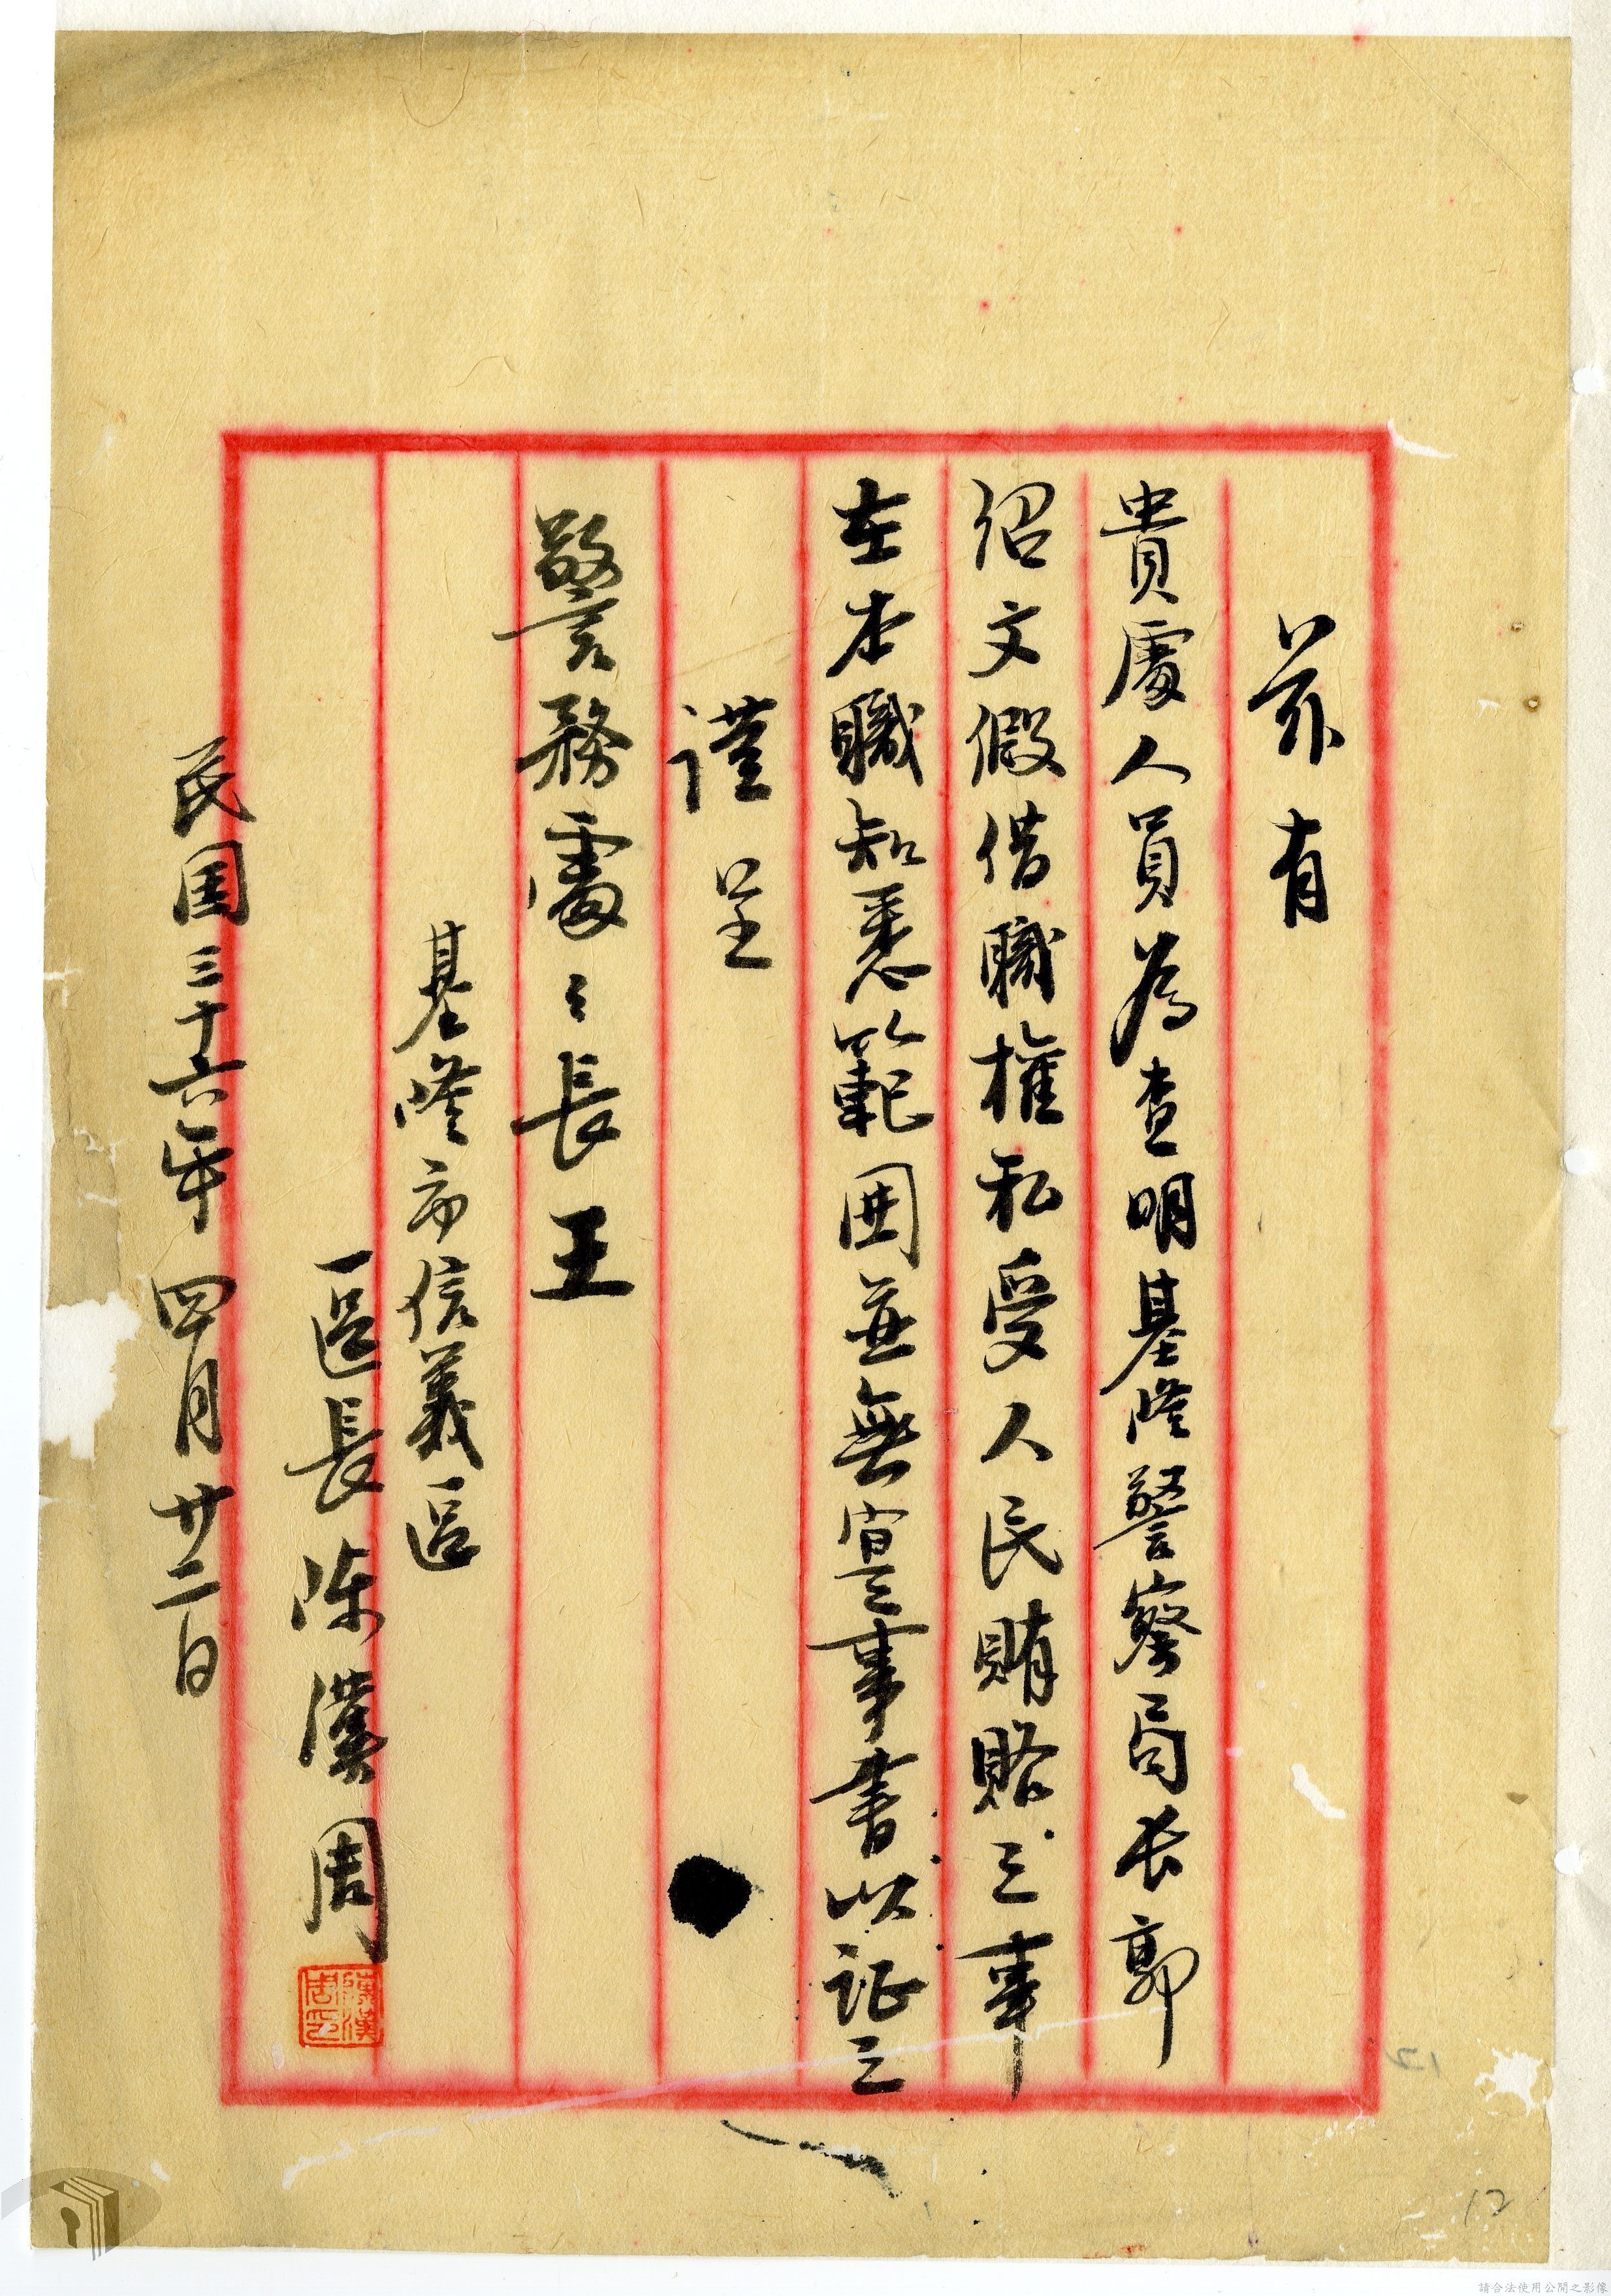 茲有
貴處人員為查明基隆警察局長郭
紹文假借職權私受人民賄賂之事
在本職知悉範囲並無實之事書以証之
謹呈
警務處々長王
基隆市信義區
區長陳漢周
陳漢周印
民国三十六年四月廿二日
12
12
請合法使用公開之影像